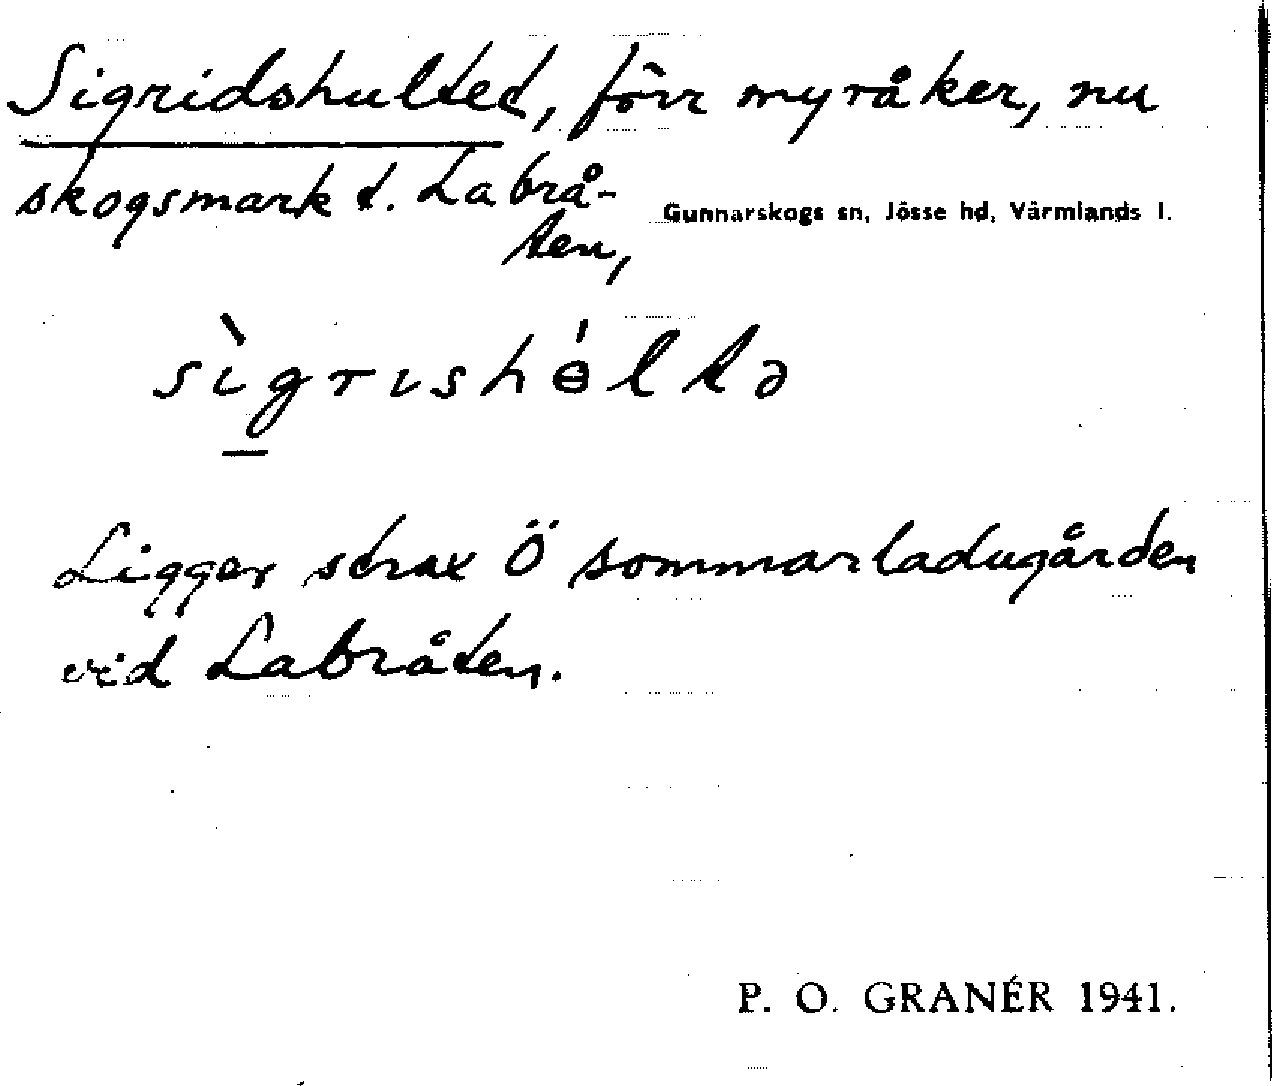 Sigridshultet, förr myråker, nu
skogsmark t. Labrå-
ten,
Gunnarskogs sn, Jösse hd, Värmlands l.
sìgrıshɵ́ltə
Ligger strax Ö sommarladugården
vid Labråten.
P. O. GRANÉR 1941.